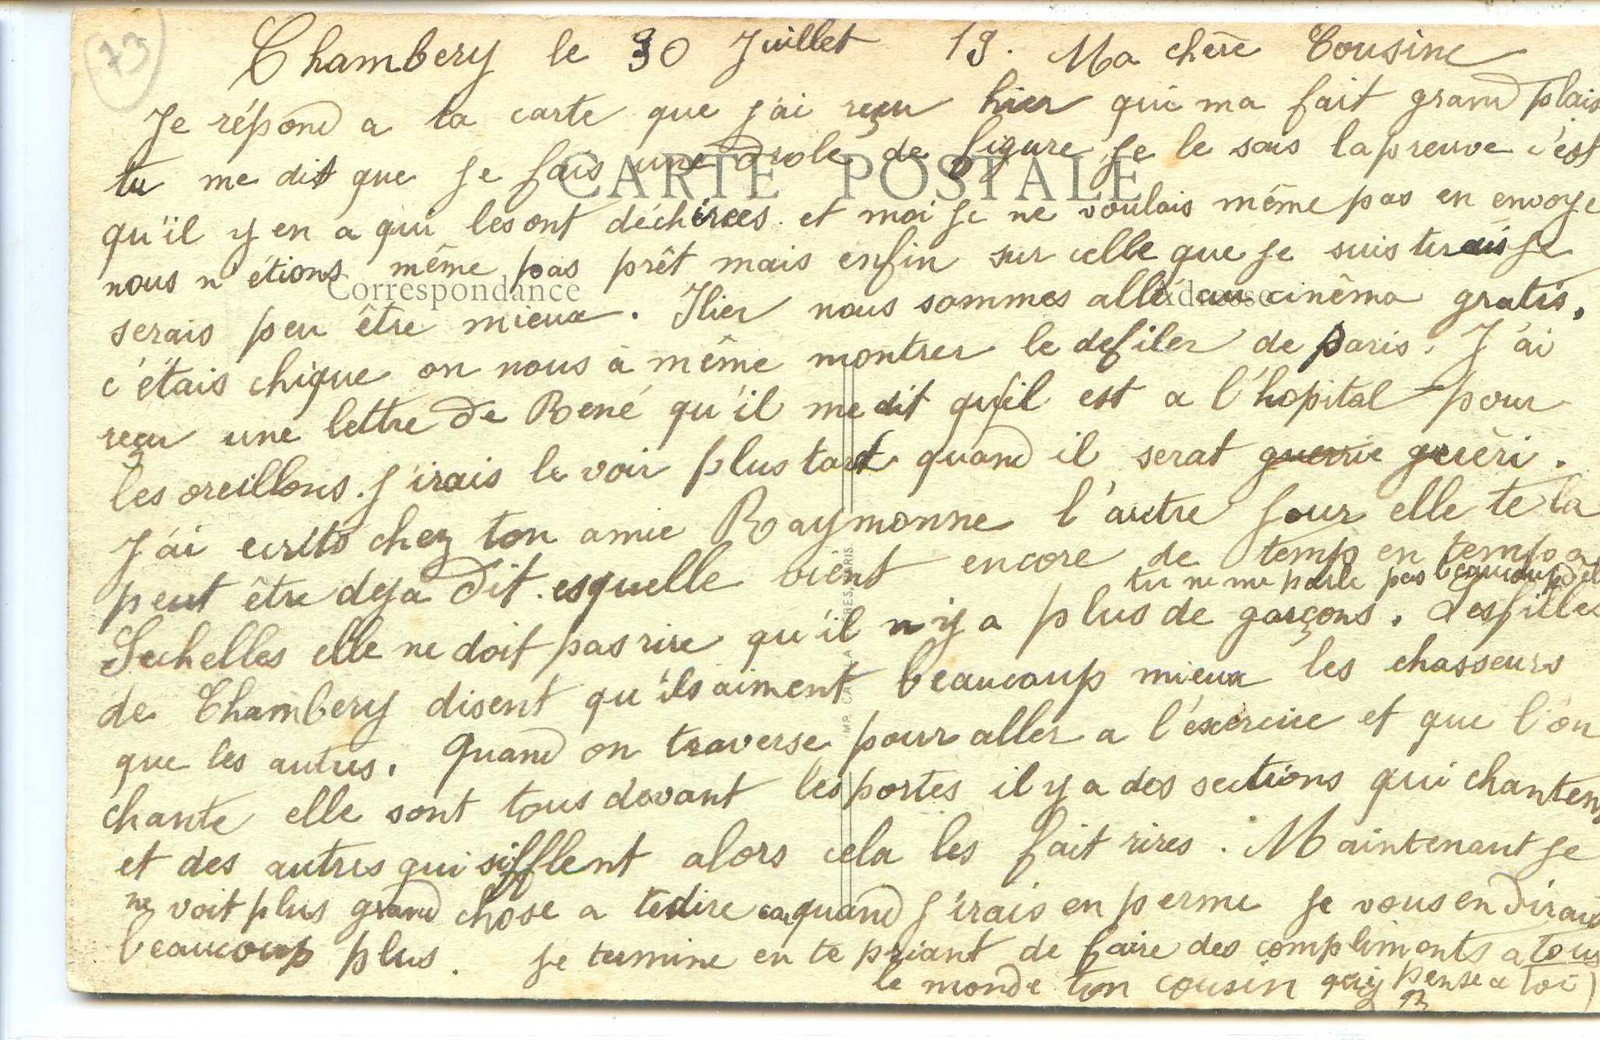 73
Chambery le 30 Juillet 19. Ma chère Cousine
Je répond a ta carte que j'ai reçu hier qui ma fait grand plais
CARTE POSTALE
tu me dit que je fais une drole de figure je le sais la preuve c'est
qu'il y en a qui les ont déchirees et moi je ne voulais même pas en envoye
nous n'étions même pas prêt mais enfin sur celle que je suis tirais je
Correspondance
serais peu être mieux. Hier nous sommes allé au cinéma gratis.
c'étais chique on nous à même montrer le defiler de paris. J'ai
reçu une lettre de René qu'il me dit qu'il est a l'hopital pour
les oreillons. j'irais le voir plus tart quand il serat guerrie gueèri.
J'ai ecrits chez ton amie Raymonne l'autre jour elle te la
peut être deja dit. esquelle vient encore de temp en temp a
tu ne me parle pas beaucoup
Sechelles elle ne doit pas rire qu'il n'y a plus de garçons. Les filles
de Chambery disent qu'ils aiment beaucoup mieux les chasseurs
que les autres. Quand on traverse pour aller a l'exercice et que l'on
chante elle sont tous devant les portes il y a des sections qui chantent
et des autres qui sifflent alors cela les fait rires. Maintenant je
ne voit plus grand chose a te dire car quand j'irais en perme je vous en dirais
beaucoup plus. je termine en te priant de faire des compliments a tous
le monde ton cousin qui pense a toi